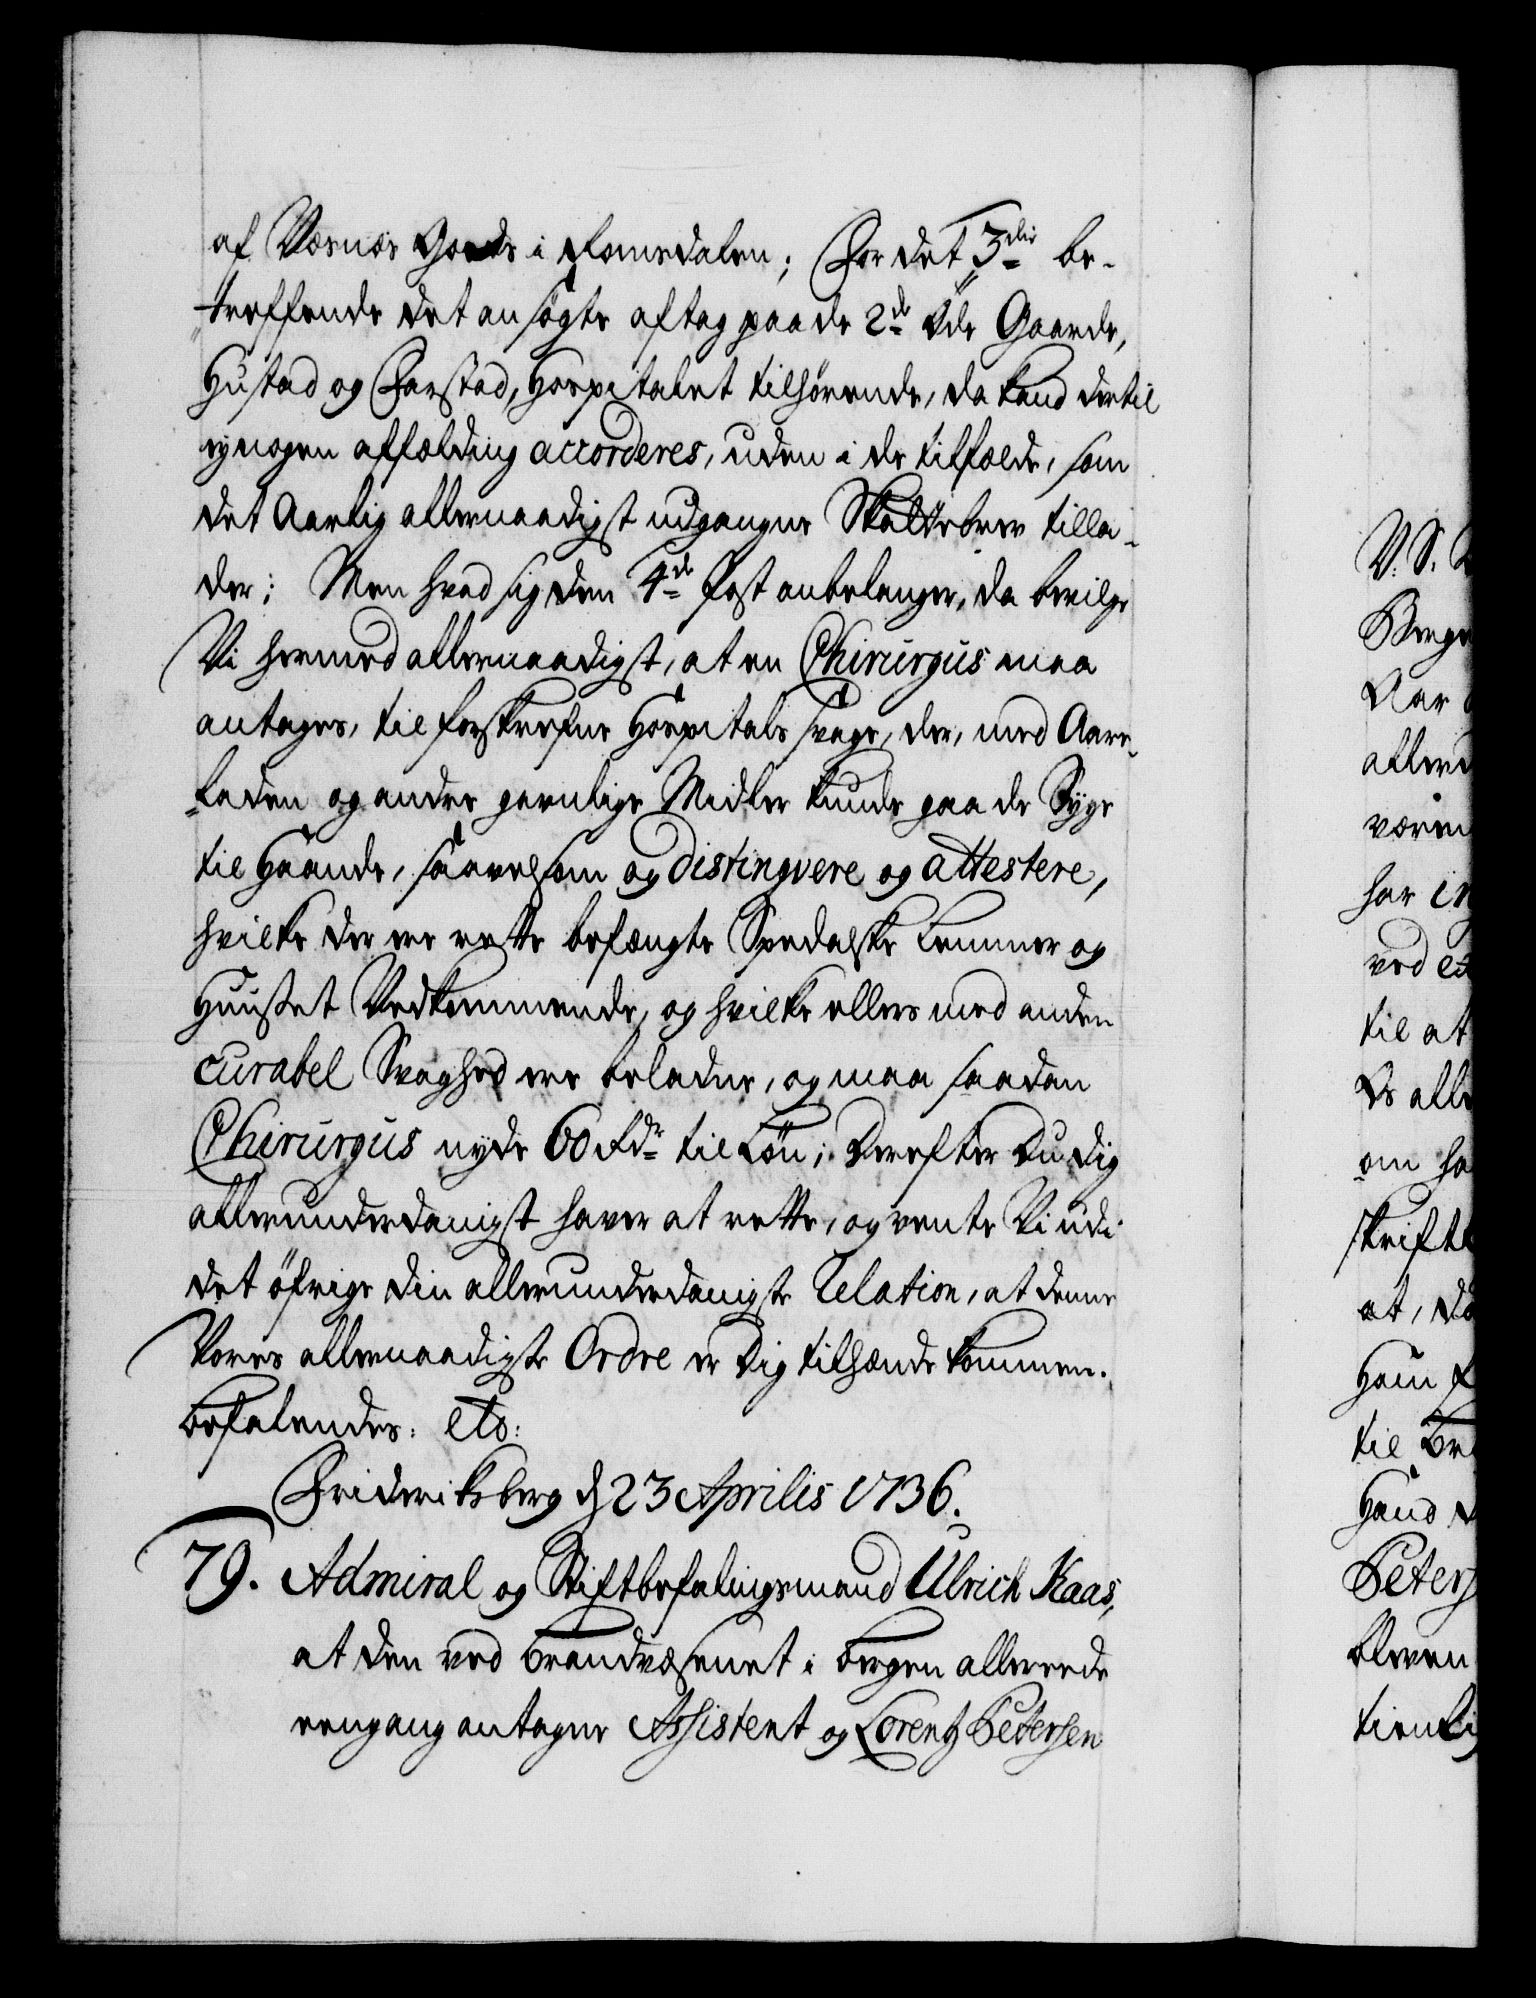 af Værnes Gods i Romsdalen; For det 3die be-
treffende det ansøgte aftag paa de 2de Øde Gaarde,
Hustad og Farstad, Hospitalet tilhørende, da kand dertil
ey nogen affælding accorderes, uden i de tilfælde, som
det Aarlig allernaadigst udgangne Skattebrev tilla-
der; Men hvad sig den 4de Post anbelanger, da bevilge
Vi hermed allernaadigst, at en Chirurgus maa
antages, til forskrefne Hospitals svage, der, med Aare-
laden og andre gavnlige Midler kunde gaa de Syge
til Haande, saavelsom og distingvere og attestere,
hvilke der ere rette befængte Spedalske Lemmer og
Huuset Vedkommende, og hvilke ellers med anden
curabel Svaghed ere beladne, og maa saadan
Chirurgus nyde 60 Rdr til Løn; Derefter Du dig
allerunderdanigst haver at rette, og vente Vi udi
det øfrige din allerunderdanigste Relation, at denne
Vores allernaadigste Ordre er Dig tilhænde kommen.
Befalendes: etc:
Frideriksberg d 23 Aprilis 1736.
79. Admiral og Stiftbefalingsmand Ulrich Kaas,
at den ved Brandvæsenet i Bergen allereede
eengang antagne Assistent og Lorentz Petersen
V. S.
Aar
til at
om
at,
til
Peters
bleven